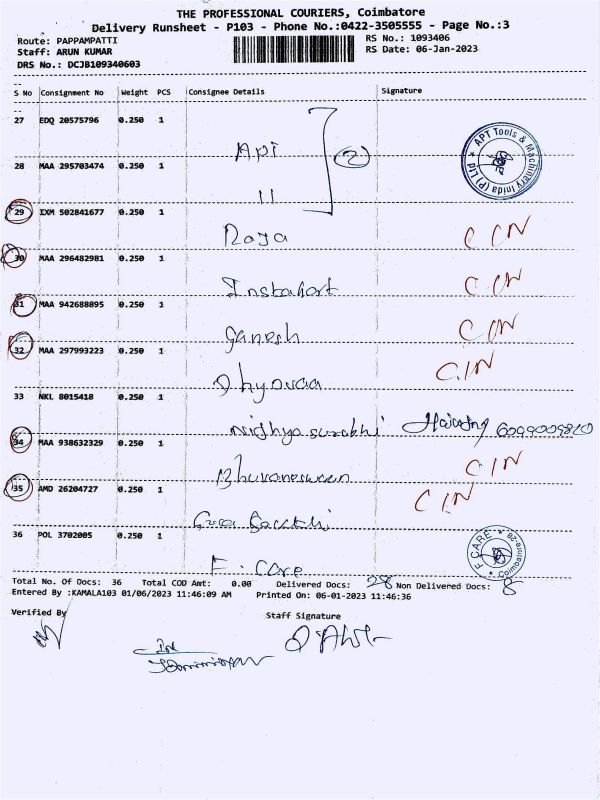 THE PROFESSIONAL COURIERS, Coimbatore
Delivery Runsheet - P103 - Phone No.:0422-3505555 - Page No.:3
Route: PAPPAMPATTI
RS No.: 1093406
Staff: ARUN KUMAR
RS Date: 06-Jan-2023
DRS No.: DCJB109340603
S No Consignment No Weight PCS Consignee Details Signature
27 EDQ 20575796 0.250 1
Api
APT Tools & Machinery Inida (P) Ltd
2
28 MAA 295703474 0.250 1
11
29 IXM 502841677 0.250 1
Raja CIN
30 MAA 296482981 0.250 1
Instakart CIN
31 MAA 942688895 0.250 1
Ganesh CIN
32 MAA 297993223 0.250 1
CIN
33 NKL 8015418 0.250 1
34 MAA 938632329 0.250 1
CIN
35 AMD 26204727 0.250 1
CIN
36 POL 3702005 0.250 1
F. Care
F CARE Coimbatore-28
Total No. Of Docs: 36 Total COD Amt: 0.00 Delivered Docs: 28 Non Delivered Docs: 8
Entered By :KAMALA103 01/06/2023 11:46:09 AM Printed On: 06-01-2023 11:46:36
Verified By Staff Signature